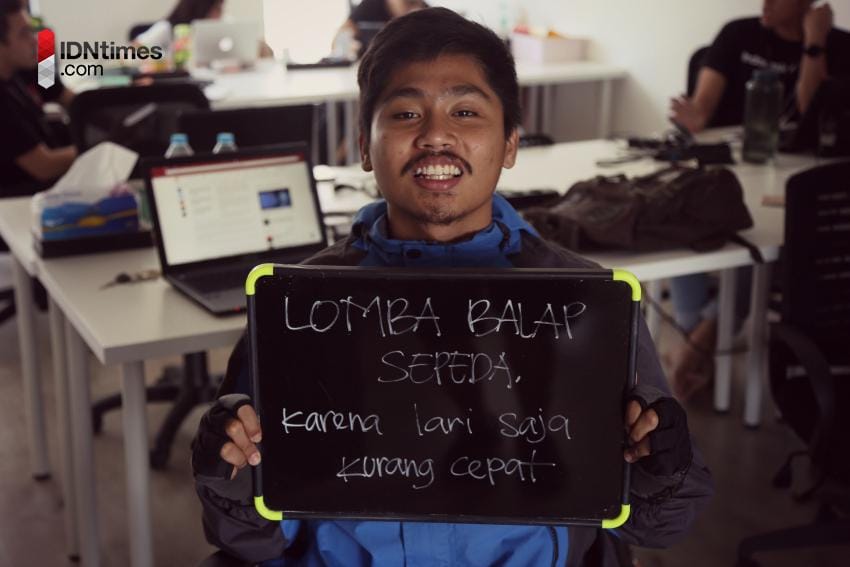 IDNtimes
.com
LOMBA BALAP
SEPEDA.
karena lari saja
kurang cepat